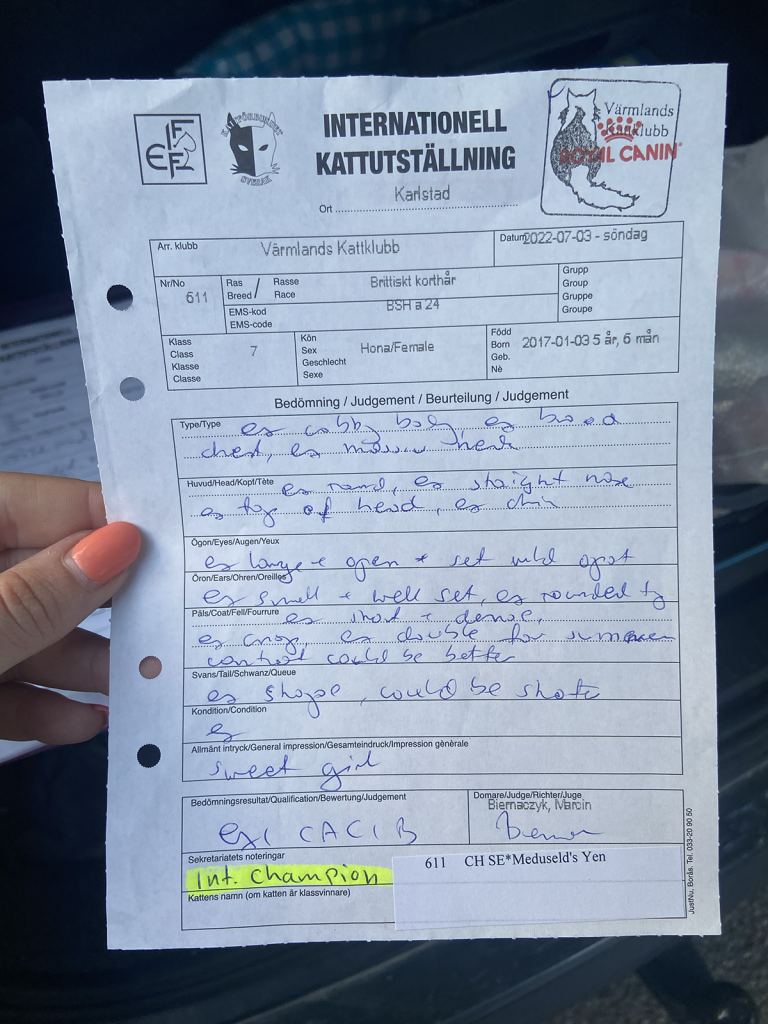 FIFe
KATTFÖRBUNDET
SVERAK
INTERNATIONELL
KATTUTSTÄLLNING
Värmlands
Kattklubb
ROYAL CANIN
Ort Karlstad
Arr. klubb Värmlands Kattklubb
Datum 2022-07-03 - söndag
Nr/No 611
Ras Rasse
Breed / Race
Brittiskt korthår
EMS-kod
EMS-code
BSH a 24
Grupp
Group
Gruppe
Groupe
Klass
Class
Klasse
Classe
7
Kön
Sex
Geschlecht
Sexe
Hona/Female
Född
Born
Geb.
Nè
2017-01-03 5 år, 6 mån
Bedömning / Judgement / Beurteilung / Judgement
Type/Type ex cobby body, ex broad
chest, ex neck
Huvud/Head/Kopf/Tête ex round, ex straight nose
ex top of head, ex chin
Ögon/Eyes/Augen/Yeux
ex large + open + set
Öron/Ears/Ohren/Oreilles
ex small + well set, ex rounded
Päls/Coat/Fell/Fourrure ex short + dense,
ex crisp, ex double for summer
contrast could be better
Svans/Tail/Schwanz/Queue
ex shape, could be shorter
Kondition/Condition
ex
Allmänt intryck/General impression/Gesamteindruck/Impression gènèrale
sweet girl
Bedömningsresultat/Qualification/Bewertung/Judgement
ex1 CACIB
Domare/Judge/Richter/Juge
Biernaczyk, Marcin
Sekretariatets noteringar
Int. Champion
611 CH SE*Meduseld's Yen
Kattens namn (om katten är klassvinnare)
JustNu, Borås. Tel. 033-20 90 50